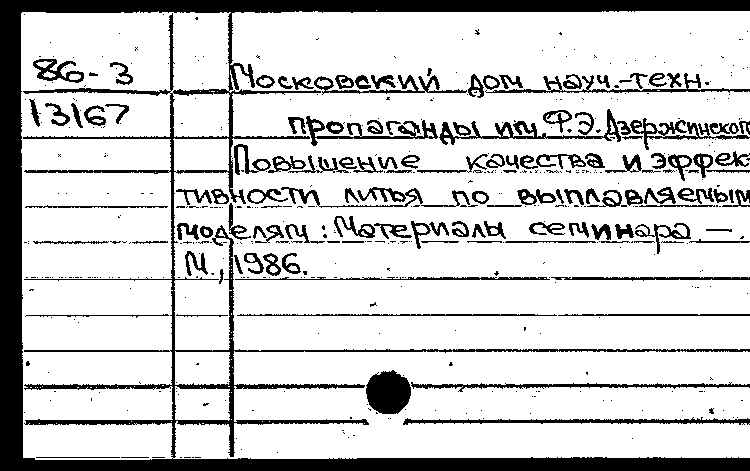 86-3 Московский дом науч.-техн.
13167 пропаганды им. Ф.Э. Дзержинского
Повышение качества и эффек-
тивности литья по выплавляемым
моделям : Материалы семинара. —
М., 1986.